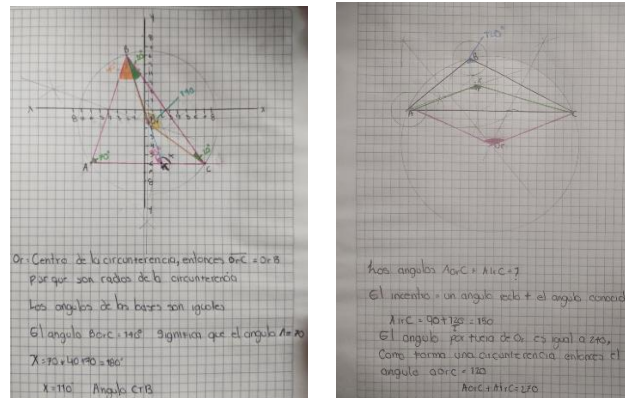 Or = Centro de la circunferencia, entonces OrC = OrB
porque son radios de la circunferencia
Los angulos de las bases son iguales
El angulo BOrC = 140° significa que el angulo A = 70
X = 70 + 40 + 90 = 180°
X = 110° Angulo CTB
Los angulos AOrC + AIrC = ?
El incentro = un angulo recto + el angulo conocid
AIrC = 90 + 120 = 150
2
El angulo por fuera de Or es igual a 240,
Como forma una circunferencia entonces el
angulo aorc = 120
AOrC + AIrC = 270